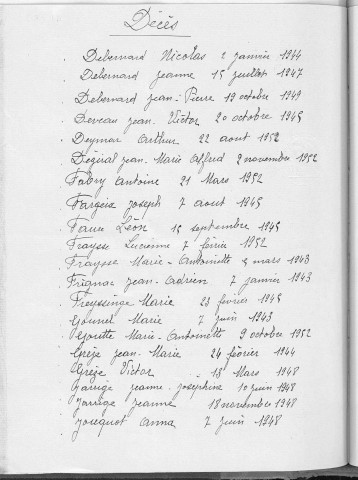 Décès
Debernard Nicolas 2 janvier 1944
Debernard Jeanne 15 juillet 1947
Debernard Jean-Pierre 19 octobre 1949
Deveau Jean-Victor 20 octobre 1945
Deymar Arthur 22 aout 1952
Dégéial Jean-Marie Alfred 2 novembre 1952
Fabry Antoine 21 Mars 1952
Fargeix Joseph 7 aout 1945
Faure Léon 15 septembre 1945
Fraysse Lucienne 7 février 1952
Fraysse Marie-Antoinette 2 mars 1943
Frignac Jean-Adrien 7 janvier 1943
Freyssinge Marie 23 février 1945
Gounel Marie 7 juin 1943
Goutte Marie-Antoinette 9 octobre 1952
Grèze Jean-Marie 24 février 1944
Grèze Victor 13 Mars 1948
Jarrige Jeanne-Josephine 10 juin 1948
Jarrige Jeanne 18 novembre 1948
Jocquot Anna 7 juin 1948